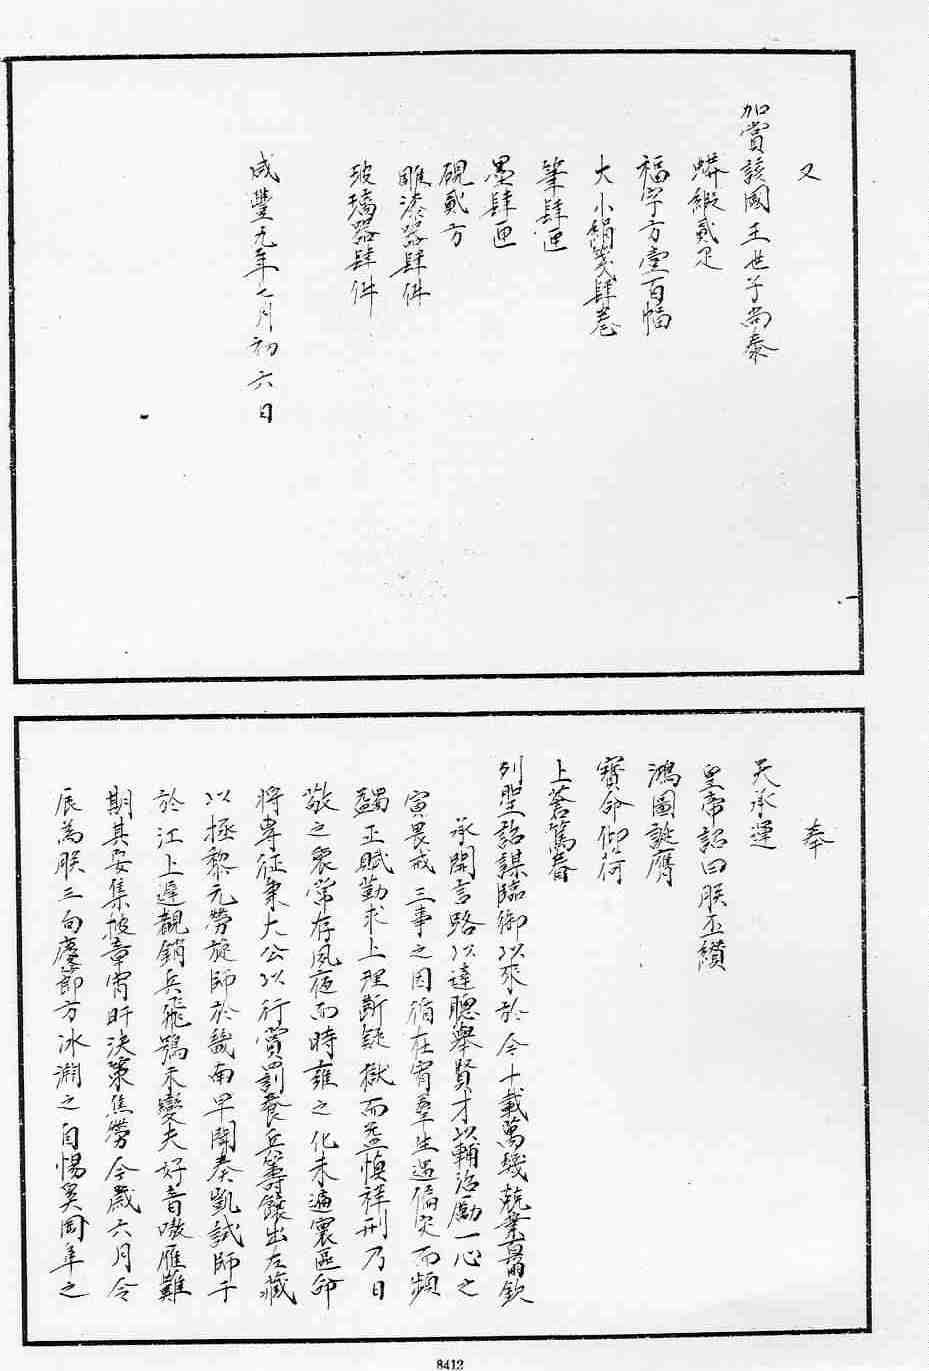 又
加賞該國王世子尚泰
蟒緞貳疋
福字方壹百幅
大小絹箋肆卷
筆肆匣
墨肆匣
硯貳方
雕漆器肆件
玻璃器肆件
咸豐元年七月初六日
奉
天承運
皇帝詔曰朕丕纘
鴻圖誕膺
寶命仰荷
上蒼篤眷
列聖詒謀臨御以來於今十載萬幾兢業晷欽
承開言路以達聰舉賢才以輔治勵一心之
寅畏戒三事之因循在宥羣生遇偏灾而頻
蠲正賦勤求上理斷疑獄而益慎祥刑乃日
敬之衷常存夙夜而時雍之化未遍寰區命
將專征秉大公以行賞罰養兵籌餉出左藏
以拯黎元勞旋師於畿南早聞奏凱試師干
於江上遲覩銷兵飛鴞未變夫好音嗷雁難
期其安集披章宵旰決策焦勞今歲六月令
辰為朕三旬慶節方冰淵之自惕奚岡年之
8412